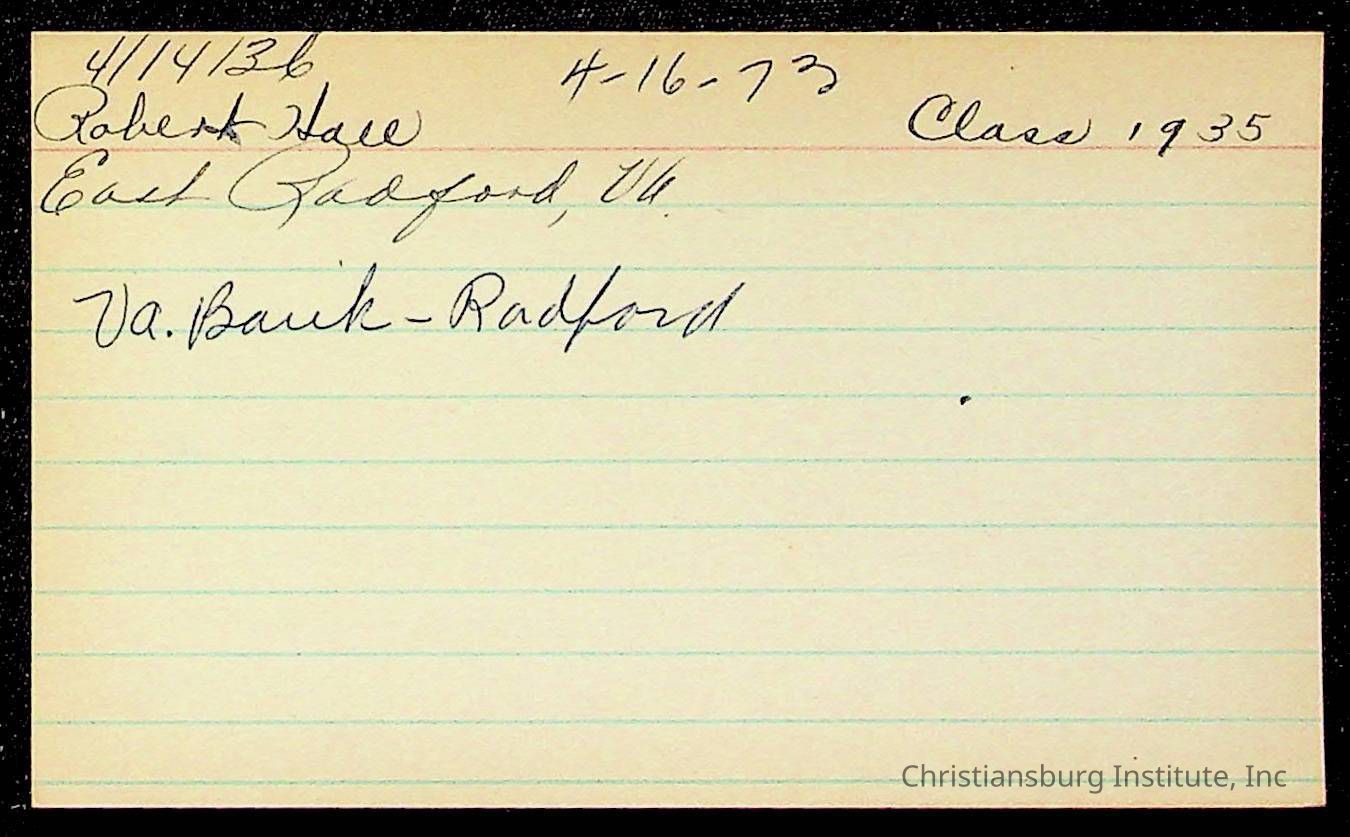 4/14/36 4-16-73
Robert Hall Class 1935
East Radford, Va.
Va. Bank - Radford
Christiansburg Institute, Inc